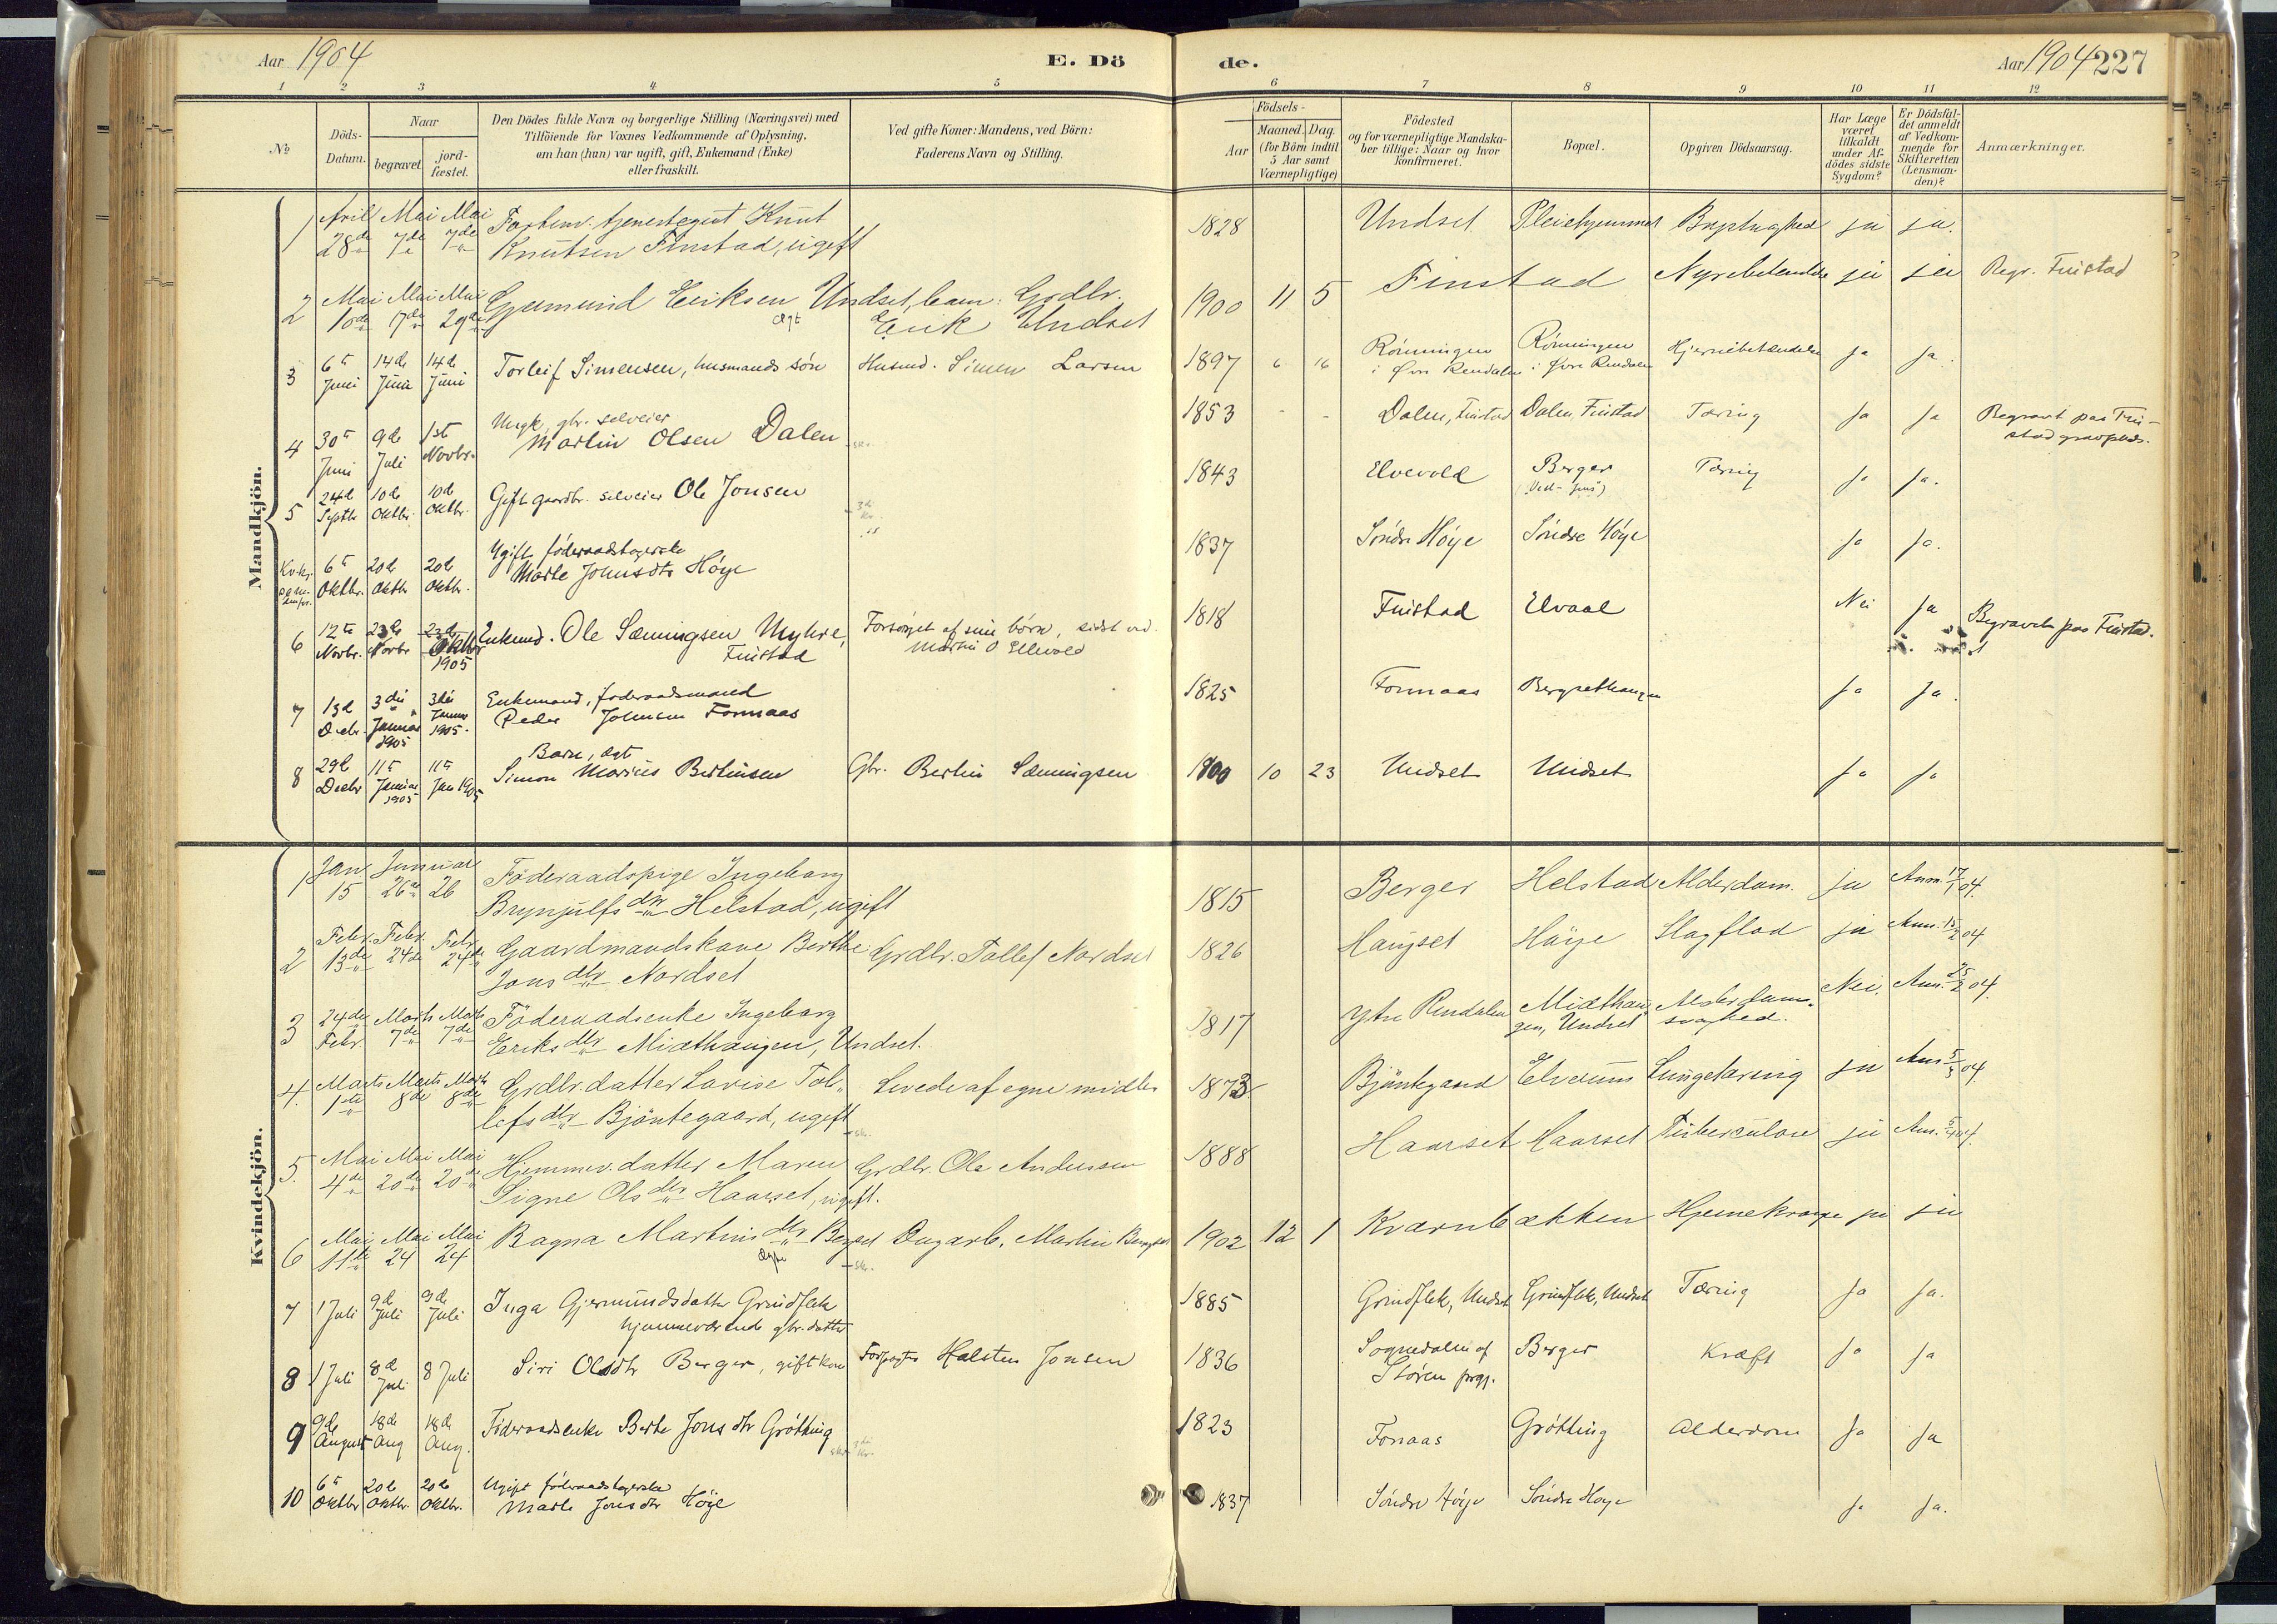 Aar 1904
E. Dö
de.
Aar 1904 227
1 2 3 4 5 6 7 8 9 10 11 12
№
Döds-
Datum.
Naar
begravet.
jord-
fæstet.
Den Dödes fulde Navn og borgerlige Stilling (Næringsvei) med
Tilföiende for Voxnes Vedkommende af Oplysning,
om han (hun) var ugift, gift, Enkemand (Enke)
eller fraskilt.
Ved gifte Koner: Mandens, ved Börn:
Faderens Navn og Stilling.
Födsels-
Aar
Maaned. Dag.
(for Börn indtil
5 Aar samt
Værnepligtige)
Födested
og for værnepligtige Mandska-
ber tillige: Naar og hvor
konfirmeret.
Bopæl.
Opgiven Dödsaarsag.
Har Læge
været
tilkaldt
under Af-
dödes sidste
Sygdom?
Er Dödsfal-
det anmeldt
af Vedkom-
mende for
Skifteretten
(Lensman-
den)?
Anmærkninger.
Mandkjön.
1 April Mai Mai tjenestegut Knut 1828 Undset Pleiehjemmet ja ja.
28de 7de 7de Knutsen Finstad, ugift
2 Mai Mai Mai Gjermund Eriksen Undset, barn: Grdbr. 1900 11 5 Finstad ja ja Finstad
10de 17de 29de ægt Erik Undset
3 6te 14de 14de Torleif Simensen, husmands sön Husmd. Simen Larsen 1897 6 16 Rönningen Rönningen Hjernebetændelse ja ja.
Juni Juni Juni i Øvre Rendalen i Øvre Rendalen
4 30te 9de 1ste Ungk, gbr. selveier 1853 - - Dalen, Finstad Dalen, Finstad Tæring ja ja Begravet paa Fin-
Juni Juli Novbr. Martin Olsen Dalen stad gravplads.
5 24de 10de 10de Gift gaardbr. selveier Ole Jonsen 1843 Elvevold Berger Tæring ja ja.
Septbr Oktbr. Oktbr.
Kv.kj. 6te 20de 20de Ugift föderaadstagerske 1837 Söndre Höye Söndre Höye ja ja.
Oktbr. Oktbr Oktbr. Marte Johnsdtr Höye
6 12te 23de 23de Enkemd. Ole Sæmingsen Myhre, Forsörget af sine börn, sidst ved 1818 Finstad Elvaal Nei ja Begravet paa Finstad.
Novbr. Novbr Oktbr 1905 Finstad Martin O Ellevold
7 13de 3die 3die Enkemand, föderaadsmand 1825 Fonnaas Bergsethaugen ja ja.
Decbr. Januar 1905 Januar 1905. Peder Johnsen Fonnaas
8 29de 11te 11te Barn, ægte
Decbr Januar 1905 Jan 1905 Simon Marius Bertinsen Gbr. Bertin Sæmingsen 1900 10 23 Undset Undset ja ja
Kvindekjön.
1 Jan Januar Föderaadspige Ingeborg 1815 Berger Helstad Alderdom. ja Anm. 17/1 04.
15 26de 26 Brynjulfsdtr Helstad, ugift
2 Febr. Febr. Febr Gaardmandskone Berthe Grdbr. Tollef Nordset 1826 Haugset Höye Slagflod ja Anm. 15/2 04
13de 24de 24de Jonsdtr Nordset
3 24de Marts Marts Föderaadsenke Ingeborg 1817 Ytre Rendalen Midthau- Alderdoms- Nei. Anm. 25/2 04.
Febr. 7de 7de Eriksdtr Midthaugen, Undset. gen, Undset svaghed.
4. Marts Marts Marts Grdbr datter Lovise Tol- Levede af egne midler 1873. Bjöntegaard Elverum Lungetæring ja Anm 5/3 04.
1ste 8de 8de lefsdtr Bjöntegaard, ugift
5. Mai Mai Mai Hjemmev. datter Maren Grdbr. Ole Andersen 1888 Haarset Haarset Tuberculose ja Anm.
4de 20de 20de Signe Olsdtr Haarset, ugift.
6 Mai Mai Mai Ragna Martinsdtr Bergset Dagarb. Martin Bergset 1902 12 1 Kværnbækken Hjernekrampe ja ja
11te 24 24 ægte
7 1 Juli 9de Juli 9de Juli Inga Gjermundsdatter Grindflek 1885 Grindflek, Undset Grindflek, Undset Tæring ja ja.
hjemmeværende gbr. datter
8 1 Juli 8de Juli 8 Juli Siri Olsdtr Berger, gift kone Forpagter Halsten Jonsen 1836 Sognedalen af Berger Kræft ja ja
Støren prgj.
9 9de 18de 18de Föderaadsenke Berte Jonsdtr Grötting 1823 Fonaas Grötting Alderdom ja ja
August Aug Aug.
10 6te 20de 20de Ugift föderaadstagerske
Oktbr Oktbr. Oktbr. Marte Jonsdtr Höye 1837 Söndre Höye Söndre Höye ja ja.